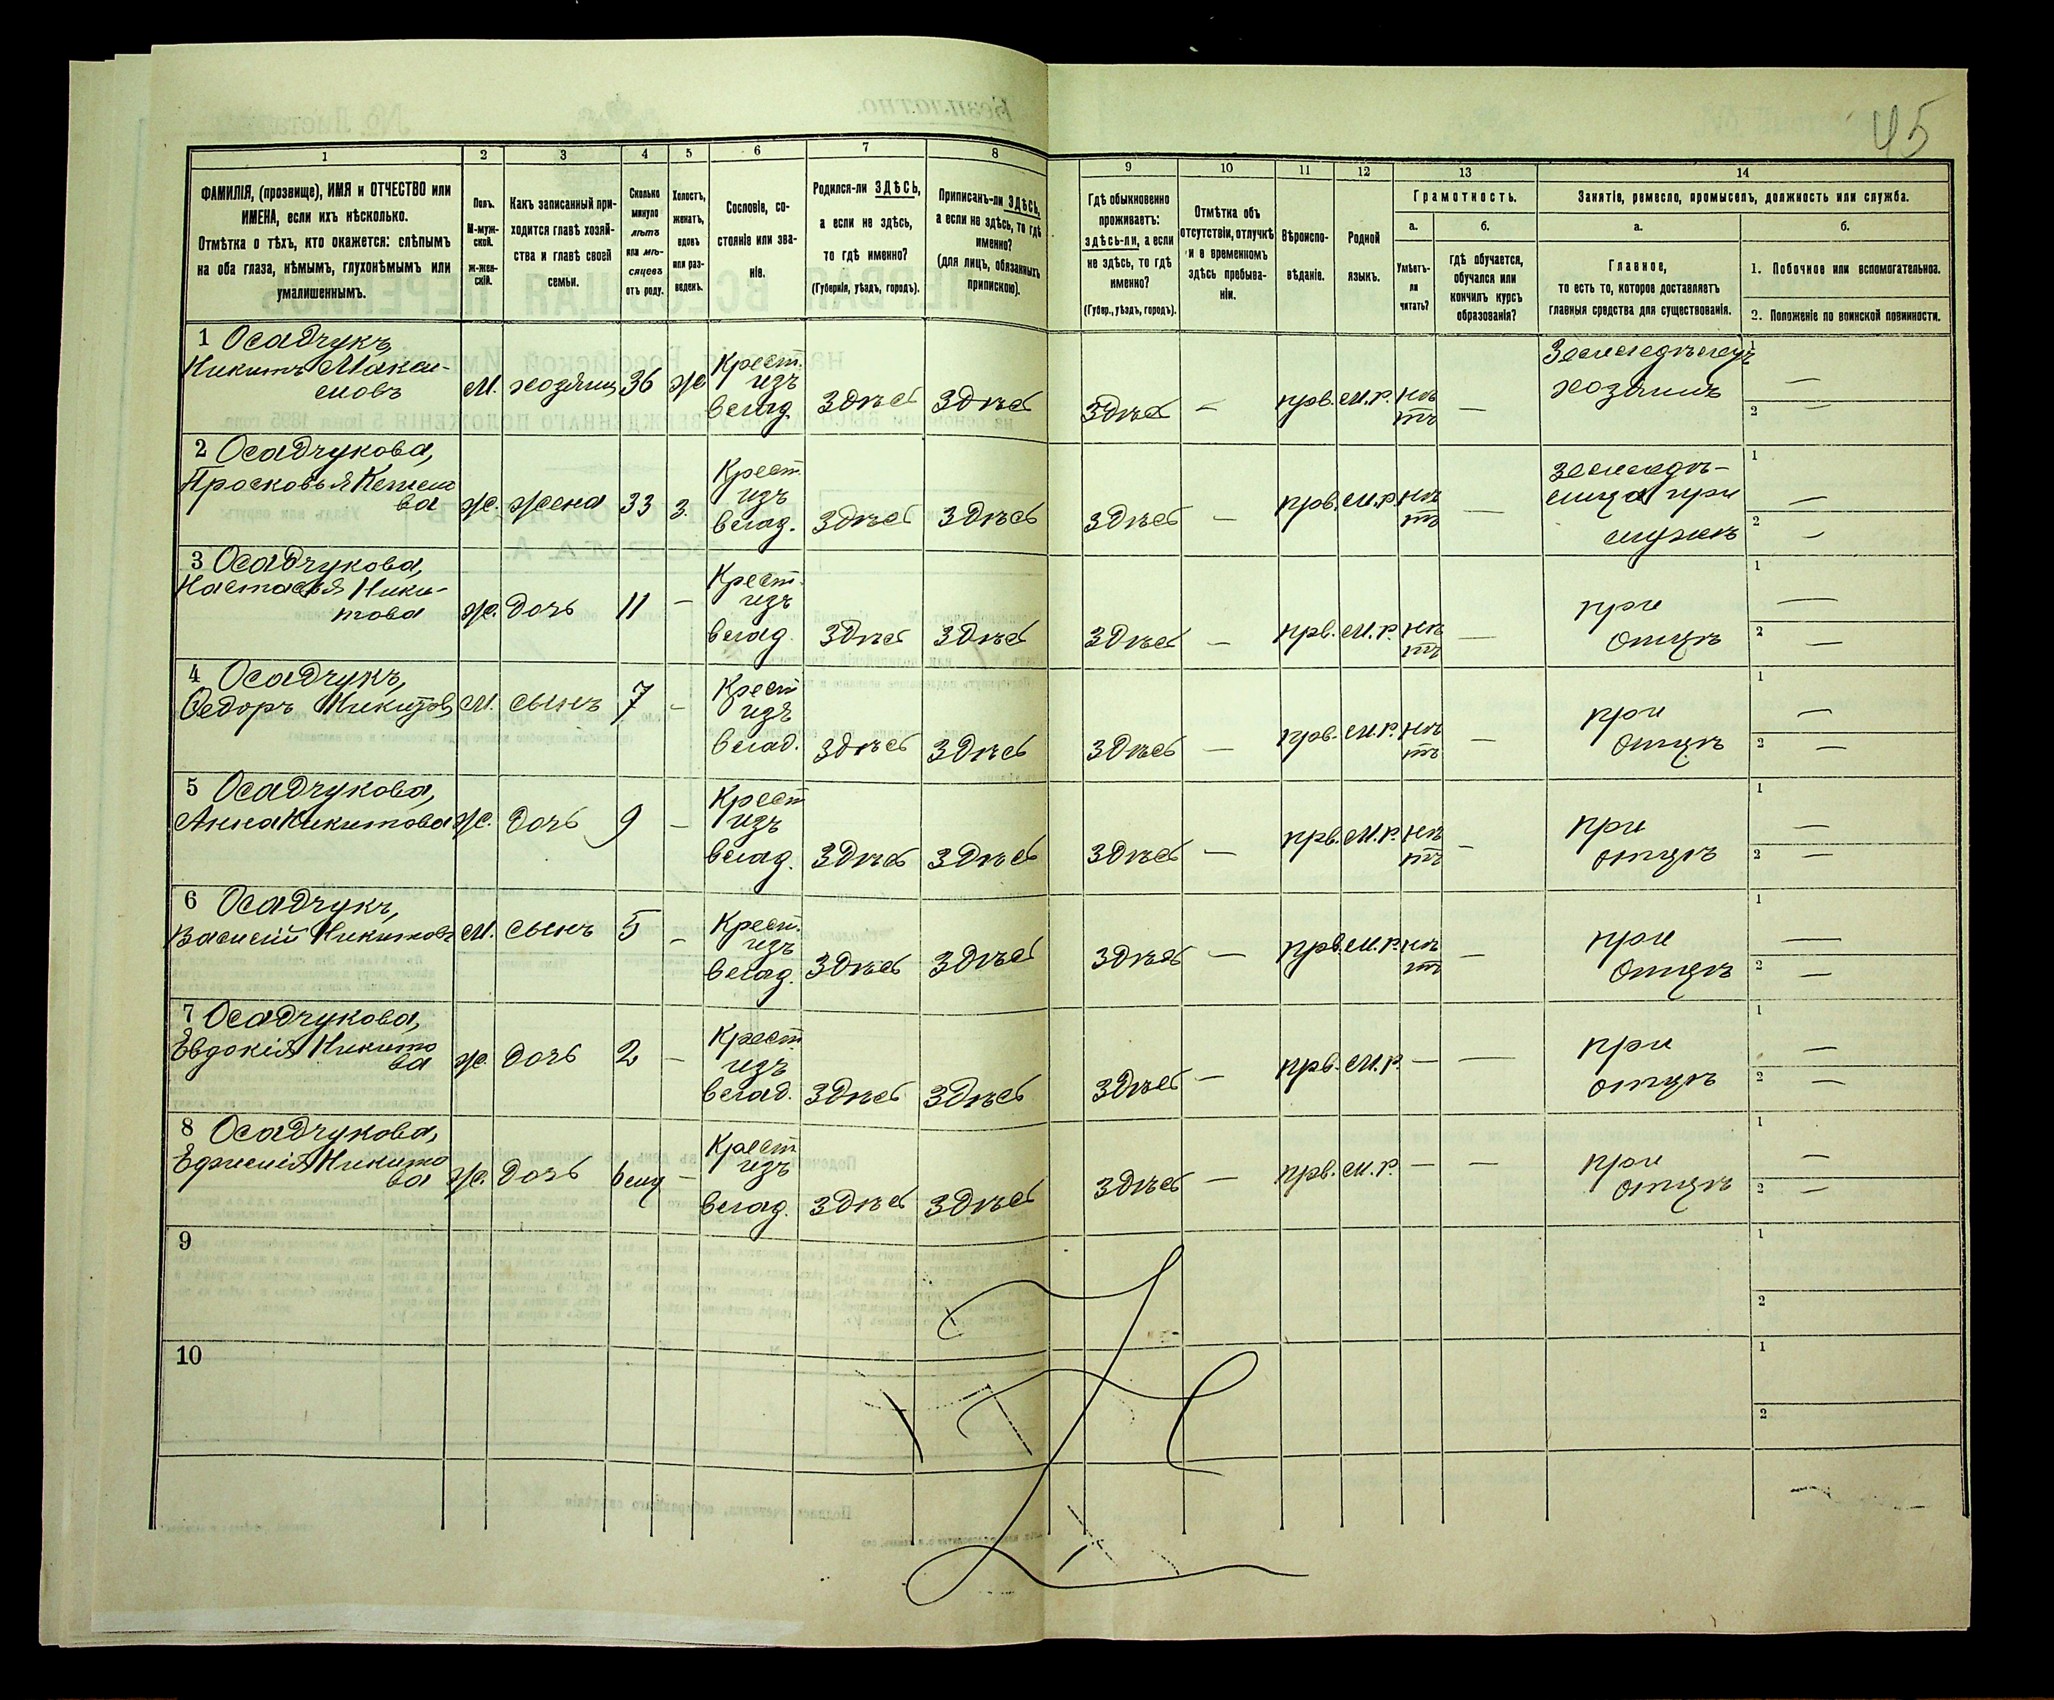 45
1 2 3 4 5 6 7 8 9 10 11 12 13 14
ФАМИЛІЯ, (прозвище), ИМЯ и ОТЧЕСТВО или
ИМЕНА, если ихъ нѣсколько.
Отмѣтка о тѣхъ, кто окажется: слѣпымъ
на оба глаза, нѣмымъ, глухонѣмымъ или
умалишеннымъ.
Полъ.
М-муж-
ской.
ж-жен-
скій.
Какъ записанный при-
ходится главѣ хозяй-
ства и главѣ своей
семьи.
Сколько
минуло
лѣтъ
или мѣ-
сяцевъ
отъ роду.
Холостъ,
женатъ,
вдовъ
или раз-
веденъ.
Сословіе, со-
стояніе или зва-
ніе.
Родился-ли ЗДѢСЬ,
а если не здѣсь,
то гдѣ именно?
(Губернія, уѣздъ, городъ).
Приписанъ-ли ЗДѢСЬ,
а если не здѣсь, то гдѣ
именно?
(для лицъ, обязанныхъ
припискою).
Гдѣ обыкновенно
проживаетъ:
здѣсь-ли, а если
не здѣсь, то гдѣ
именно?
(Губер., уѣздъ, городъ).
Отмѣтка объ
отсутствіи, отлучкѣ
и о временномъ
здѣсь пребыва-
ніи.
Вѣроиспо-
вѣданіе.
Родной
языкъ.
Грамотность.
а.
Умѣетъ-
ли
читать?
б.
гдѣ обучается,
обучался или
кончилъ курсъ
образованія?
Занятіе, ремесло, промыселъ, должность или служба.
а.
Главное,
то есть то, которое доставляетъ
главныя средства для существованія.
б.
1. Побочное или вспомогательное.
2. Положеніе по воинской повинности.
1 Осадчукъ,
Никитъ Макси-
мовъ
м. хозяин 36 ж
Крест.
изъ
влад.
здѣсь здѣсь здѣсь — прв. м.р. нѣ
тъ —
хозяинъ
1 —
2 —
2 Осадчукова,
ва ж. жена 33 з.
Крест.
изъ
влад. здѣсь здѣсь здѣсь — прв. м.р. нѣ
тъ —
при
мужѣ
1 —
2 —
3 Осадчукова,
Настасья Ники-
това ж. дочь 11 —
Крест.
изъ
влад. здѣсь здѣсь здѣсь — прв. м.р. нѣ
тъ —
при
отцѣ
1 —
2 —
4 Осадчукъ,
Ѳедоръ Никитов м. сынъ 7 —
Крест
изъ
влад. здѣсь здѣсь здѣсь — прв. м.р. нѣ
тъ —
при
отцѣ
1 —
2 —
5 Осадчукова,
Анна Никитова ж. дочь 9 —
Крест
изъ
влад. здѣсь здѣсь здѣсь — прв. м.р. нѣ
тъ —
при
отцѣ
1 —
2 —
6 Осадчукъ,
Василій Никитовъ м. сынъ 5 —
Крест.
изъ
влад. здѣсь здѣсь здѣсь — прв. м.р. нѣ
тъ —
при
отцѣ
1 —
2 —
7 Осадчукова,
Евдокія Никито
ва ж. дочь 2 —
Крест.
изъ
влад. здѣсь здѣсь здѣсь — прв. м.р. — —
при
отцѣ
1 —
2 —
8 Осадчукова,
Ефимія Никито
ва ж. дочь —
Крест
изъ
влад. здѣсь здѣсь здѣсь — прв. м.р. — —
при
отцѣ
1 —
2 —
9
1
2
10
1
2